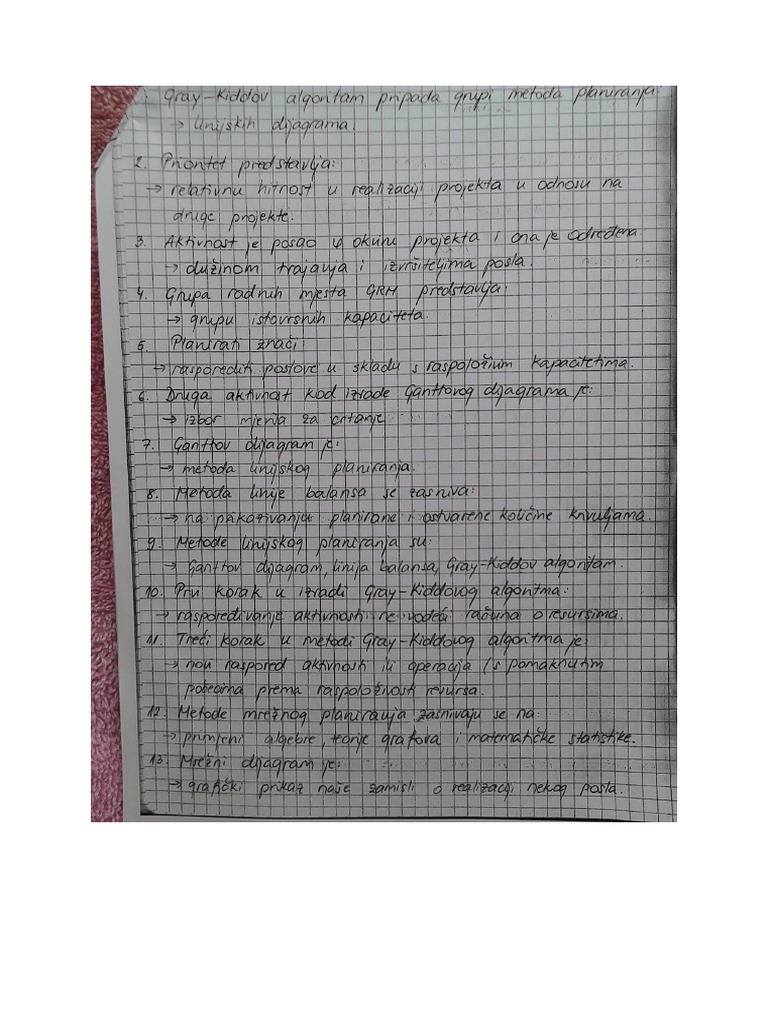 Gray-Kiddov algoritam pripada grupi metoda planiranja:
→ linijskih dijagrama.
2. Prioritet predstavlja:
→ relativnu hitnost u realizaciji projekta u odnosu na
druge projekte.
3. Aktivnost je posao u okviru projekta i ona je određena
→ dužinom trajavja i izvršiteljima posla.
4. Grupa radnih mjesta GRM predstavlja:
→ grupu istovrsnih kapaciteta.
5. Planirati znači:
→ rasporediti poslove u skladu s raspoloživim kapacitetima.
6. Druga aktivnost kod izrade Ganttovog dijagrama je:
→ izbor mjerila za crtanje
7. Ganttov dijagram je:
→ metoda linijskog planiranja.
8. Metoda linije balansa se zasniva:
→ na prikazivanju planirane i ostvarene količine krivuljama.
9. Metode linijskog planiranja su:
→ Ganttov dijagram, linija balansa, Gray-Kiddov algoritam.
10. Prvi korak u izradi Gray-Kiddovog algoritma:
→ raspoređivanje aktivnosti ne vodeći računa o resursima.
11. Treći korak u metodi Gray-Kiddovog algoritma je:
→ novi raspored aktivnosti ili operacija (s pomaknutim
počecima prema raspoloživosti resursa.
12. Metode mrežnog planiranja zasnivaju se na:
→ primjeni algebre, teorije grafova i matematičke statistike.
13. Mrežni dijagram je:
→ grafički prikaz naše zamisli o realizaciji nekog posla.